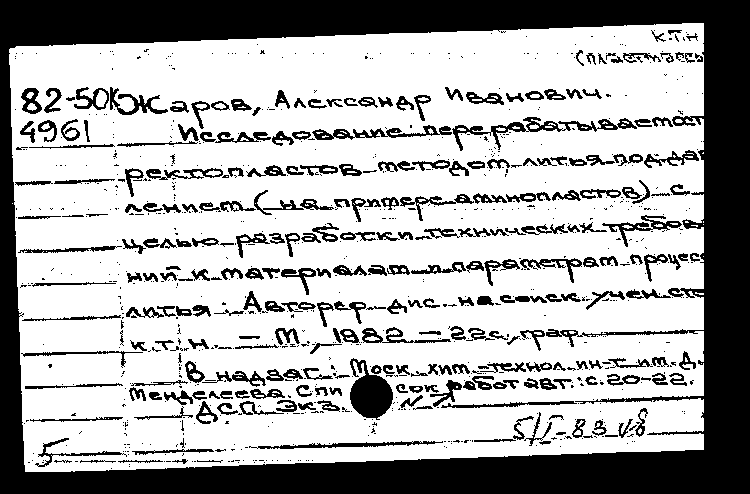 К.Т.Н
(пластмассы
82-50К Жаров, Александр Иванович.
4961 Исследование перерабатываемост
ректопластов методом литья под дав
лением (на примере аминопластов) с
целью разработки технических требова
ний к материалам и параметрам процесс
литья: Автореф. дис. на соиск. учен. сте
к.т.н. - М., 1982 - 22с., граф.
В надзаг.: Моск. хим.-технол. ин-т им. Д.
Менделеева. Спи сок работ авт.: с.20-22.
ДСП. Экз. №
5/I-83
5